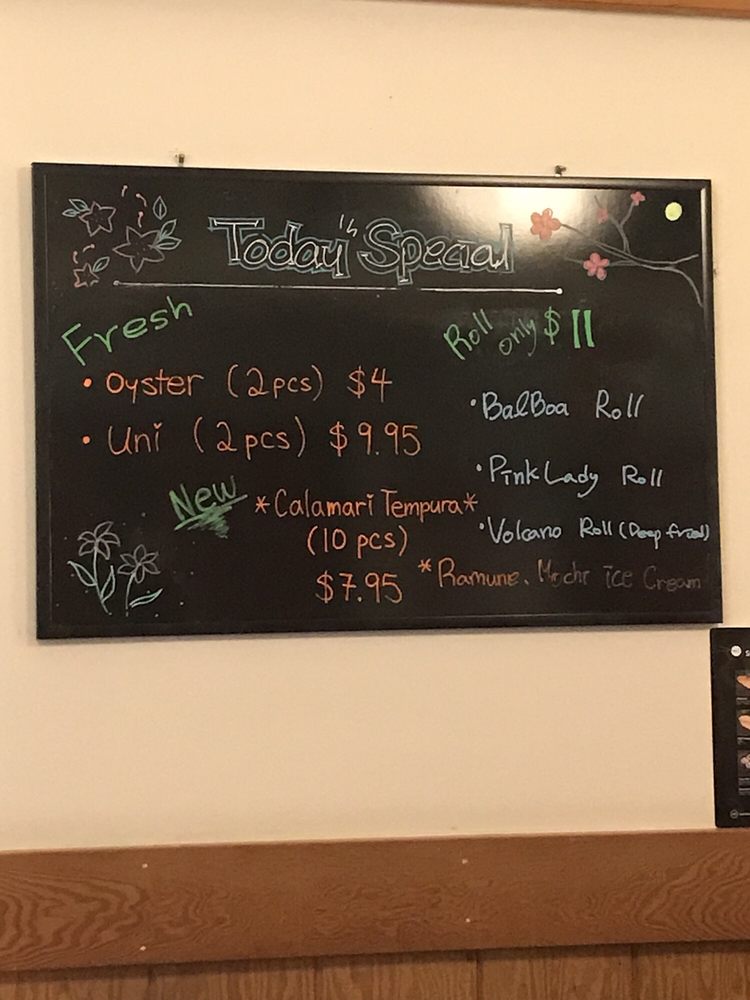 Today's Special
Fresh
• Oyster (2pcs) $4
• Uni (2pcs) $9.95
New
*Calamari Tempura*
(10 pcs)
$7.95
Roll only $11
• BalBoa Roll
• Pink Lady Roll
• Volcano Roll (Deep fried)
* Ramune, Mochi ice Cream